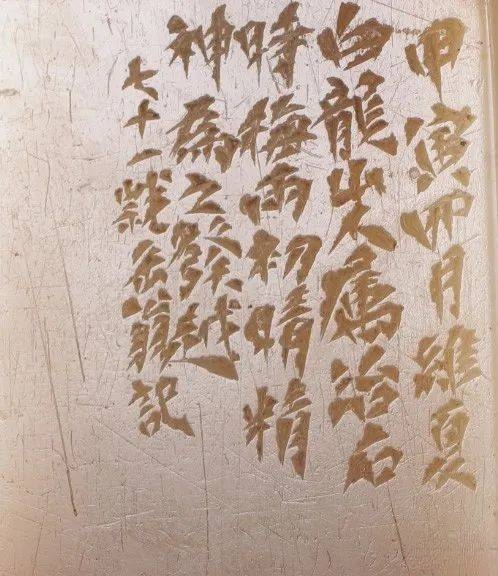 甲寅四月維夏
白龍山人属治石
時梅雨初晴精
神為之發越
七十一戩岳崩記